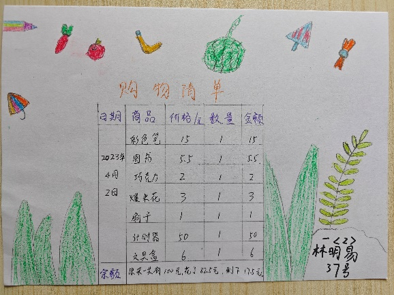 购物清单
日期 商品 价格/元 数量 金额
彩色笔 15 1 15
2023年 图书 5.5 1 5.5
4月 巧克力 2 1 2
2日 爆米花 3 1 3
扇子 1 1 1
计时器 50 1 50
文具盒 6 1 6
余额 100元,花了82.5元,剩下17.5元
一<2>
林明易
37号